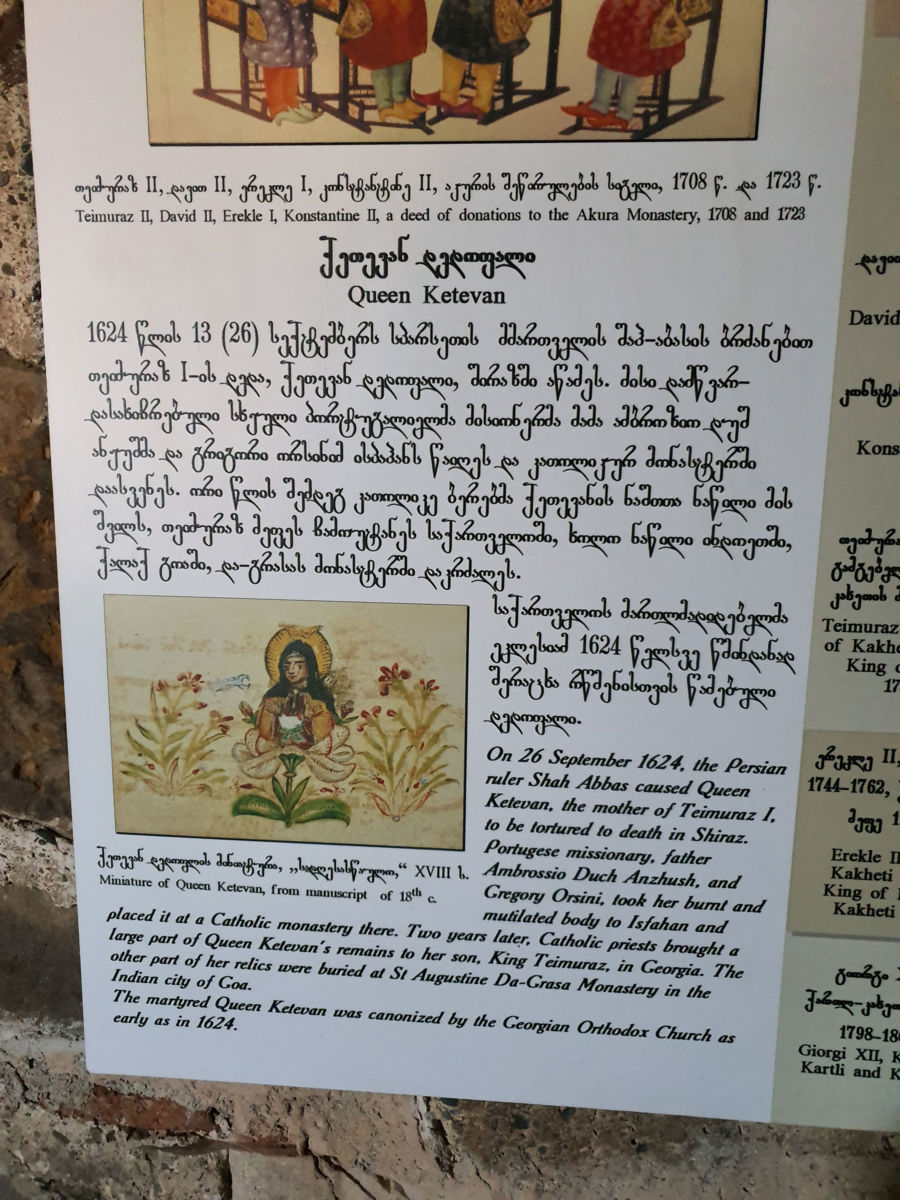 თეიმურაზ II, დავით II, ერეკლე I, კონსტანტინე II, აკურის შეწირულების სიგელი, 1708 წ. და 1723 წ.
Teimuraz II, David II, Erekle I, Konstantine II, a deed of donations to the Akura Monastery, 1708 and 1723
ქეთევან დედოფალი
Queen Ketevan
1624 წლის 13 (26) სექტემბერს სპარსეთის მმართველის შაჰ-აბასის ბრძანებით
თეიმურაზ I-ის დედა, ქეთევან დედოფალი, შირაზში აწამეს. მისი დამწვარ-
დასახიჩრებული სხეული პორტუგალიელმა მისიონერმა მამა ამბროზიო დუშ
ანჟუშმა და გრიგორი ორსინიმ ისპაჰანს წაიღეს და კათოლიკურ მონასტერში
დაასვენეს. ორი წლის შემდეგ კათოლიკე ბერებმა ქეთევანის ნაშთთა ნაწილი მის
შვილს, თეიმურაზ მეფეს ჩამოუტანეს საქართველოში, ხოლო ნაწილი ინდოეთში,
ქალაქ გოაში, და-გრასას მონასტერში დაკრძალეს.
საქართველოს მართლმადიდებელმა
ეკლესიამ 1624 წელსვე წმინდანად
შერაცხა რწმენისთვის წამებული
დედოფალი.
ქეთევან დედოფლის მინიატურა, „სადღესასწაულო,“ XVIII ს.
Miniature of Queen Ketevan, from manuscript of 18th c.
On 26 September 1624, the Persian
ruler Shah Abbas caused Queen
Ketevan, the mother of Teimuraz I,
to be tortured to death in Shiraz.
Portugese missionary, father
Ambrossio Duch Anzhush, and
Gregory Orsini, took her burnt and
mutilated body to Isfahan and
placed it at a Catholic monastery there. Two years later, Catholic priests brought a
large part of Queen Ketevan's remains to her son, King Teimuraz, in Georgia. The
other part of her relics were buried at St Augustine Da-Grasa Monastery in the
Indian city of Goa.
The martyred Queen Ketevan was canonized by the Georgian Orthodox Church as
early as in 1624.
David
Kons
Teimuraz
of Kakhe
King o
17
ერეკლე II,
1744–1762,
მეფე 1
Erekle II
Kakheti
King of
Kakheti
გიორგი
ქართლ-კახე
1798–18
Giorgi XII, K
Kartli and K